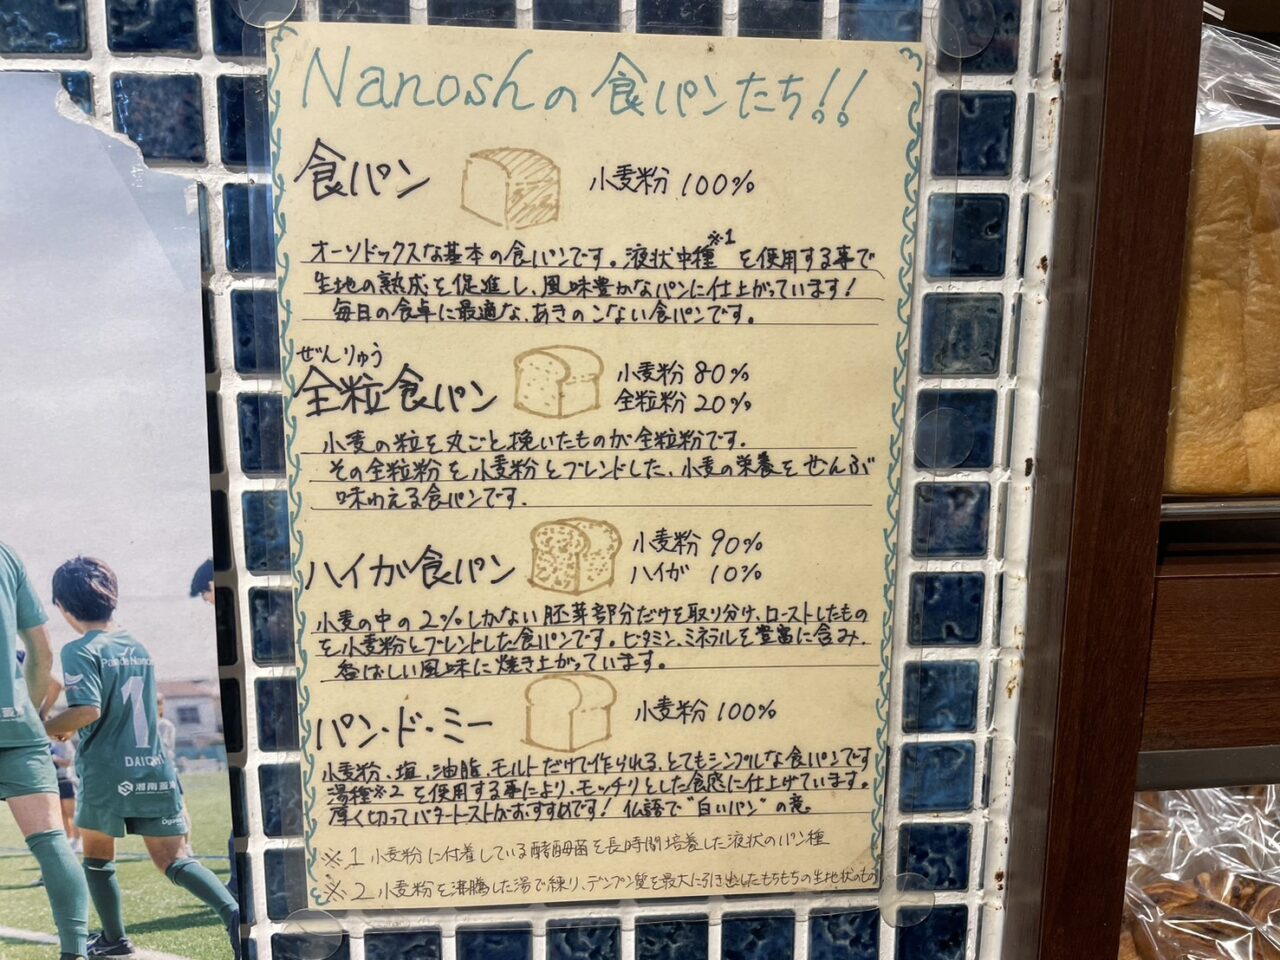 Nanoshの食パンたち!!
食パン
小麦粉 100%
オーソドックスな基本の食パンです。液状中種※1を使用する事で
生地の熟成を促進し、風味豊かなパンに仕上がっています!
毎日の食卓に最適な、あきのこない食パンです。
ぜんりゅう
全粒食パン
小麦粉 80%
全粒粉 20%
小麦の粒を丸ごと挽いたものが全粒粉です.
その全粒粉を小麦粉とブレンドした、小麦の栄養をぜんぶ
味わえる食パンです.
ハイガ食パン
小麦粉 90%
ハイガ 10%
小麦の中の2%しかない胚芽部分だけを取り分け、ローストしたもの
を小麦粉とブレンドした食パンです。ビタミン、ミネラルを豊富に含み、
香ばしい風味に焼き上がっています。
パン・ド・ミー
小麦粉 100%
小麦粉、塩、油脂、モルトだけで作られる、とてもシンプルな食パンです
湯種※2を使用する事により、モッチリとした食感に仕上げています。
厚く切ってバタートーストがおすすめです! 仏語で"白いパン"の意。
※1 小麦粉に付着している酵母菌を長時間培養した液状のパン種
※2 小麦粉を沸騰した湯で練り、デンプン質を最大に引き出したもちもちの生地状のもの
1
DAICHI